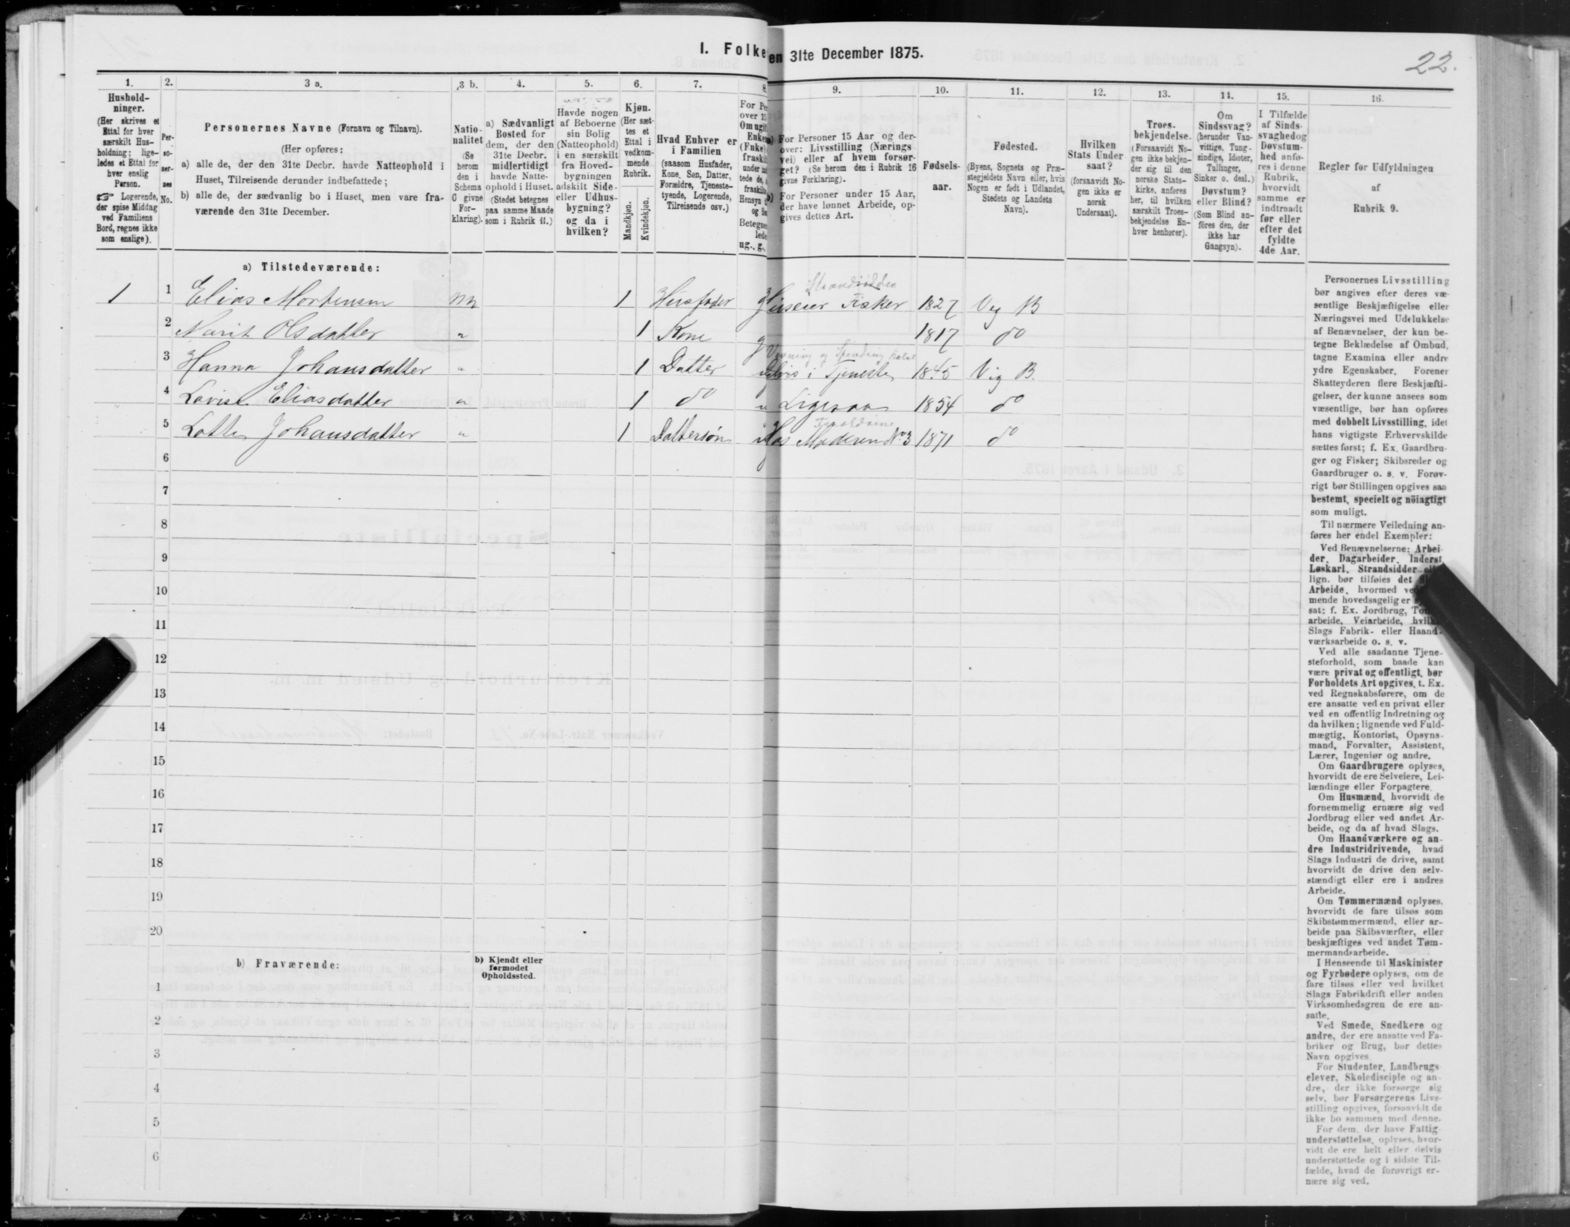 I. Folke
en 31te December 1875.
22.
1.
Hushold-
ninger.
(Her skrives et
Ettal for hver
særskilt Hus-
holdning; lige-
ledes et Ettal for
hver enslig
Person.
☞ Logerende,
der spise Middag
ved Familiens
Bord, regnes ikke
som enslige).
2.
Per-
so-
ner-
nes
No.
3 a.
Personernes Navne (Fornavn og Tilnavn).
(Her opføres:
a) alle de, der den 31te Decbr. havde Natteophold i
Huset, Tilreisende derunder indbefattede;
b) alle de, der sædvanlig bo i Huset, men vare fra-
værende den 31te December.
3 b.
Natio-
nalitet
(Se
herom
den i
Schema
C givne
For-
klaring).
4.
a) Sædvanligt
Bosted for
dem, der den
31te Decbr.
midlertidigt
havde Natte-
ophold i Huset.
(Stedet betegnes
paa samme Maade
som i Rubrik 11.)
5.
Havde nogen
af Beboerne
sin Bolig
(Natteophold)
i en særskilt
fra Hoved-
bygningen
adskilt Side-
eller Udhus-
bygning?
og da i
hvilken?
6.
Kjøn.
(Her sæt-
tes et
Ettal i
vedkom-
mende
Rubrik.
Mandkjøn.
Kvindekjøn.
7.
Hvad Enhver er
i Familien
(saasom Husfader,
Kone, Søn, Datter,
Forældre, Tjeneste-
tyende, Logerende,
Tilreisende osv.)
8.
For Pe
over 15
Om ugif
Enke
(Fuke)
fraskil
ug., g.,
9.
For Personer 15 Aar og der-
over: Livsstilling (Nærings-
vei) eller af hvem forsør-
get? (Se herom den i Rubrik 16
givne Forklaring).
For Personer under 15 Aar,
der have lønnet Arbeide, op-
gives dettes Art.
10.
Fødsels-
aar.
11.
Fødested.
(Byens, Sognets og Præ-
stegjeldets Navn eller, hvis
Nogen er født i Udlandet,
Stedets og Landets
Navn).
12.
Hvilken
Stats Under
saat?
(forsaavidt No-
gen ikke er
norsk
Undersaat).
13.
Troes-
bekjendelse.
(Forsaavidt No-
gen ikke bekjen-
der sig til den
norske Stats-
kirke, anføres
her, til hvilken
særskilt Troes-
bekjendelse En-
hver henhører).
14.
Om
Sindssvag?
(herunder Van-
vittige, Tung-
sindige, Idioter,
Tullinger,
Sinker o. desl.)
Døvstum?
eller Blind?
(Som Blind an-
føres den, der
ikke har
Gangsyn).
15.
I Tilfælde
af Sinds-
svaghed og
Døvstum-
hed anfø-
res i denne
Rubrik,
hvorvidt
samme er
indtraadt
før eller
efter det
fyldte
4de Aar.
16.
Regler for Udfyldningen
af
Rubrik 9.
a) Tilstedeværende:
Strandsidder
1 1 Elias Mortensen 1 Husfader g Huseier Fisker 1827 Veg B
2 Marit Olsdatter " 1 Kone g 1817 do
3 Hanna Johansdatter " 1 Datter i Tjeneste 1845 Vig B.
4 Lovise Eliasdatter " 1 do Ligesaa 1854 do
5 Johansdatter " 1 Dattersøn Hos Moderen No 3 1871 do
6
7
8
9
10
11
12
13
14
15
16
17
18
19
20
b) Fraværende:
b) Kjendt eller
formodet
Opholdssted.
1
2
3
4
5
6
Personernes Livsstilling
bør angives efter deres væ-
sentlige Beskjæftigelse eller
Næringsvei med Udelukkelse
af Benævnelser, der kun be-
tegne Beklædelse af Ombud,
tagne Examina eller andre
ydre Egenskaber. Forener
Skatteyderen flere Beskjæfti-
gelser, der kunne ansees som
væsentlige, bør han opføres
med dobbelt Livsstilling, idet
hans vigtigste Erhvervskilde
sættes først; f. Ex. Gaardbru-
ger og Fisker; Skibsreder og
Gaardbruger o. s. v. Forøv-
rigt bør Stillingen opgives saa
bestemt, specielt og nöiagtigt
som muligt.
Til nærmere Veiledning an-
føres her endel Exempler:
Ved Benævnelserne: Arbei-
der, Dagarbeider, Inderst,
Løskarl, Strandsidder
lign. bør tilføies det
Arbeide, hvormed
mende hovedsagelig er
sat; f. Ex. Jordbrug,
arbeide, Veiarbeide,
Slags Fabrik- eller Haand-
værksarbeide o. s. v.
Ved alle saadanne Tjene-
steforhold, som baade kan
være privat og offentligt, bør
Forholdets Art opgives, t. Ex.
ved Regnskabsførere, om de
ere ansatte ved en privat eller
ved en offentlig Indretning og
da hvilken; lignende ved Fuld-
mægtig, Kontorist, Opsyns-
mand, Forvalter, Assistent,
Lærer, Ingeniør og andre.
Om Gaardbrugere oplyses,
hvorvidt de ere Selveiere, Lei-
lændinge eller Forpagtere.
Om Husmænd, hvorvidt de
fornemmelig ernære sig ved
Jordbrug eller ved andet Ar-
beide, og da af hvad Slags.
Om Haandværkere og an-
dre Industridrivende, hvad
Slags Industri de drive, samt
hvorvidt de drive den selv-
stændigt eller ere i andres
Arbeide.
Om Tømmermænd oplyses,
hvorvidt de fare tilsøs som
Skibstømmermænd, eller ar-
beide paa Skibsværfter, eller
beskjæftiges ved andet Tøm-
mermandsarbeide.
I Henseende til Maskinister
og Fyrbødere oplyses, om de
fare tilsøs eller ved hvilket
Slags Fabrikdrift eller anden
Virksomhedsgren de ere an-
satte.
Ved Smede, Snedkere og
andre, der ere ansatte ved Fa-
briker og Brug, bør dettes
Navn opgives.
For Studenter, Landbrugs-
elever, Skoledisciple og an-
dre, der ikke forsørge sig
selv, bør Forsørgerens Livs-
stilling opgives, forsaavidt de
ikke bo sammen med denne.
For dem, der have Fattig-
understøttelse, oplyses, hvor-
vidt de ere helt eller delvis
understøttede og i sidste Til-
fælde, hvad de forøvrigt er-
nære sig ved.